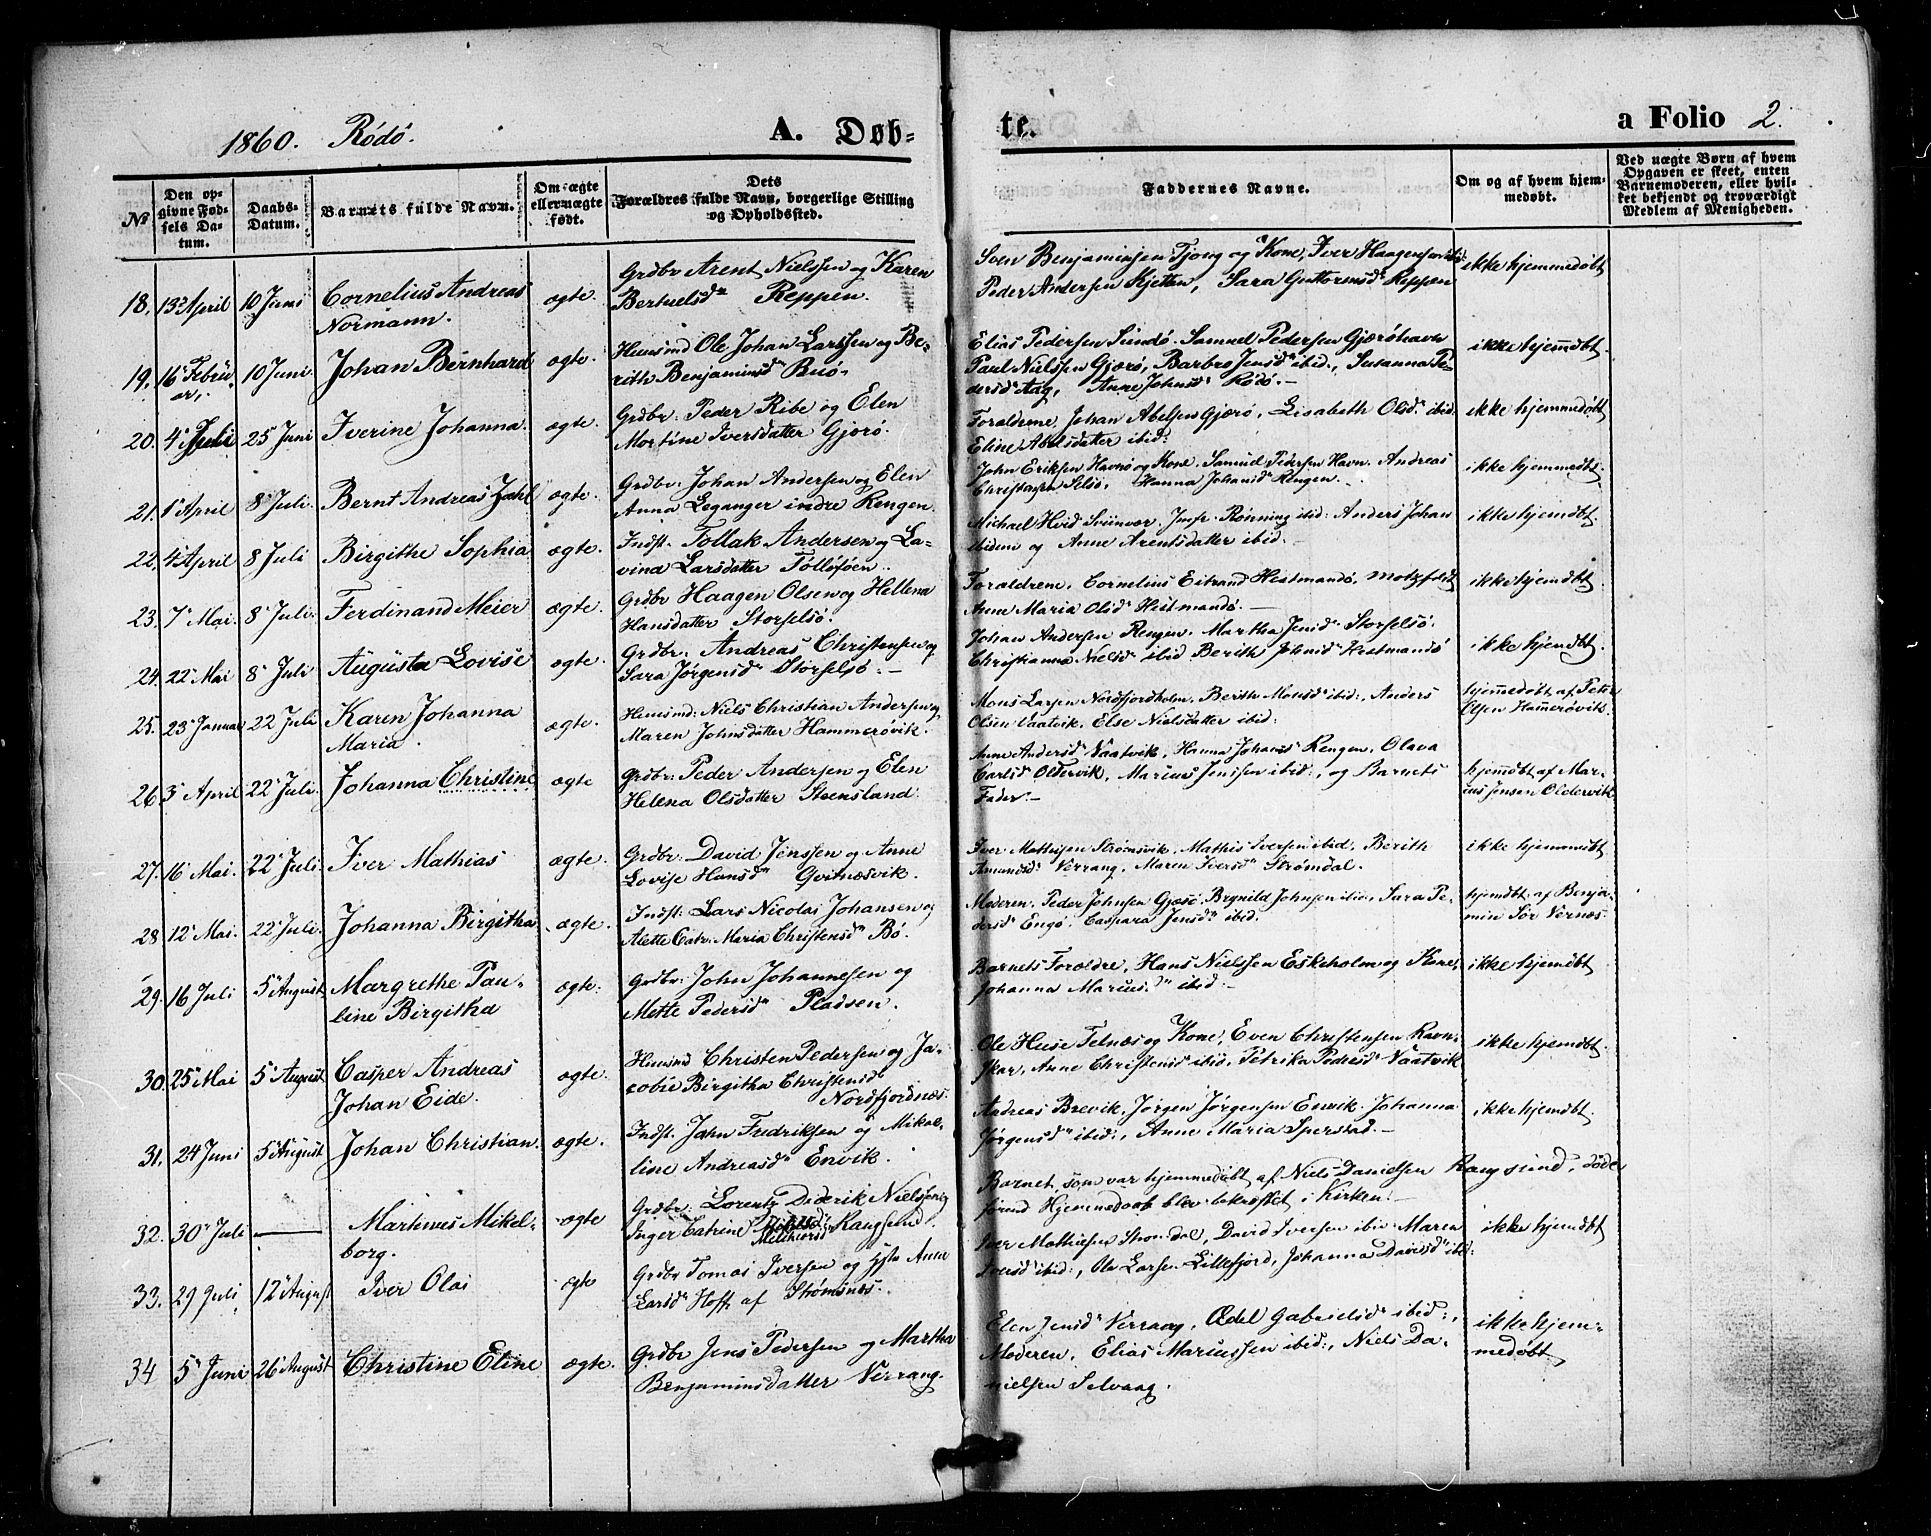 1860. Rödö. A. Døb-
te. a Folio 2.
№
Den op-
givne Fød-
sels Da-
tum.
Daabs-
Datum.
Barnets fulde Navn.
Om ægte
eller uægte
født.
Dets
Forældres fulde Navn, borgerlige Stilling
og Opholdssted.
Faddernes Navne.
Om og af hvem hjem-
medøbt.
Ved uægte Børn af hvem
Opgaven er skeet, enten
Barnemoderen, eller hvil-
ket bekjendt og troværdigt
Medlem af Menigheden.
18. 13 April 10 Juni Cornelius Andreas
Normann.
ægte.
Grdbr Arent Nielsen og Karen
Bertuelsd. Reppen.
Sven Benjaminsen Tjong og Kone, Iver Haagensen ibid:
Peder Andersen Kjetten, Sara Guttormsd. Reppen
ikke hjemmedøbt
19. 16 Febru-
ar. 10 Juni. Johan Bernhard ægte.
Huusmd Ole Johan Larssen og Be-
rith Benjaminsd Buö.
Elias Pedersen Sundö. Samuel Pedersen Gjæröhavn
Paul Nielssen Gjærö, Barbro Jensd. ibid., Susanna Pe-
dersd Aag, Anne Johnsd. Rödö.
ikke hjemdøbt
20. 4 Juli 25 Juni Iverine Johanna. ægte.
Grdbr: Peder Ribe og Elen
Mortine Iversdatter Gjærö.
Forældrene, Johan Abelsen Gjærö, Lisabeth Olsd. ibid.
Eline Abelsdatter ibid:
ikke hjemmedøbt
21. 1 April 8 Juli. Bernt Andreas Zahl ægte.
Grdbr: Johan Andersen og Elen
Anna Leganger indre Rengen.
John Eriksen Havnö og Kone. Samuel Pedersen Havn. Andreas
Christensen Selsö, Hanna Johansd Rengen.
ikke hjemdøbt.
22. 4 April 8 Juli Birgithe Sophia ægte.
Indst. Tollak Andersen og La-
vina Larsdatter
Michael Hvid Sviinvær. Jmfr. Rönning ibid: Anders Johan
ibidem og Anne Arentsdatter ibid.
ikke hjemdøbt.
23. 7 Mai. 8 Juli. Ferdinand Meier ægte.
Grdbr Haagen Olsen og Hellena
Hansdatter Storselsö.
Forældrene, Cornelius Hestmandö,
Anne Maria Olsd Hestmandö.
ikke hjemdøbt.
24. 22 Mai 8 Juli Augusta Lovise ægte.
Grdbr: Andreas Christensen og
Sara Jörgensd. Storselsö.
Johan Andersen Rengen, Martha Jensd. Storselsö.
Christianna Nielsd ibid Berith Johnsd. Hestmandö
ikke hjemdøbt.
25. 23 Januar 22 Juli Karen Johanna
Maria.
ægte.
Huusmd: Niels Christian Andersen og
Maren Johnsdatter Hammerövik.
Mons Larsen Nordfjordholm, Berith Monsd. ibid:, Anders
Olsen Vaatvik, Else Nielsdatter ibid:
hjemmedøbt af Peter
Elsen Hammerövik.
26 3 April 22 Juli. Johanna Christine ægte
Grdbr: Peder Andersen og Elen
Helena Olsdatter Steensland.
Anne Andersd Vaatvik, Hanna Johansd. Rengen, Olava
Carlsd Oldervik, Marius Jenssen ibid:, og Barnets
Fader.
hjemdøbt af Mar-
ius Jensen Oldervik.
27. 16 Mai. 22 Juli. Iver Mathias ægte.
Grdbr: David Jenssen og Anne
Lovise Hansd. Gvitnesvik.
Iver Mathisen Strömsvik, Mathis Iversen ibid. Berith
Amundsd. Verrang, Maren Iversd. Strömdal.
ikke hjemmdøbt
28 12 Mai. 22 Juli. Johanna Birgitha ægte.
Indst: Lars Nicolai Johansen og
Alette Catr: Maria Christensd. Bö.
Moderen, Peder Johnsen Gjesö. Brynild Johnsen ibid. Sara Pe-
dersd. Engö, Caspara Jensd. ibid.
hjemdøbt af Benja-
min Sör Vernes.
29. 16 Juli 5 August Margrethe Pau-
line Birgitha
ægte.
Grdbr: John Johannesen og
Mette Pedersd. Pladsen.
Barnets Forældre, Hans Nielssen Eskeholm og Kone,
Johanna Marius.d. ibid:
ikke hjemdøbt
30. 25 Mai 5 August Casper Andreas
Johan Eide.
ægte.
Huusmd Christen Pedersen og Ja-
cobie Birgitha Christensd.
Nordfjordnes.
Ole Huse Telnæs og Kone, Even Christensen Ravn-
skar, Anne Christensd ibid. Petrika Pedersd Vaatvik
ikke hjemdøbt.
31. 24 Juni 5 August Johan Christian. ægte.
Indst: Jahn Fredriksen og Mikae-
line Andreasd. Envik.
Andreas Brevik, Jörgen Jörgensen Envik. Johanna
Jörgensd. ibid:, Anne Maria Sperstad.
ikke hjemdøbt.
32. 30 Juli Martinus Mikel-
borg.
ægte
Grdbr: Lorentz Diderik Nielssen og
Inger Catrine Melchiorsd. Rangsund.
Barnet, som var hjemmedøbt af Niels Danielsen Rangsund, døde
førend Hjemmedaab blev bekræftet i Kirken.
33. 29 Juli 12 August Iver Olai ægte
Grdbr Tomas Iversen og Hst. Anne
Larsd Hoff af Strömsnes.
Iver Mathiesen Strömdal, David Iversen ibid: Maren
Iversd ibid:, Ole Larsen Lillefjord, Johanna Davidsd. ibid:
ikke hjemdøbt
34 5 Juni 26 August Christine Eline ægte.
Grdbr Jens Pedersen og Martha
Benjaminsdatter Verrang.
Elen Jensd. Verrang, Ædel Gabrielsd. ibid:,
Moderen, Elias Mariussen ibid:, Niels Da-
nielsen Selvaag.
ikke hjem-
medøbt